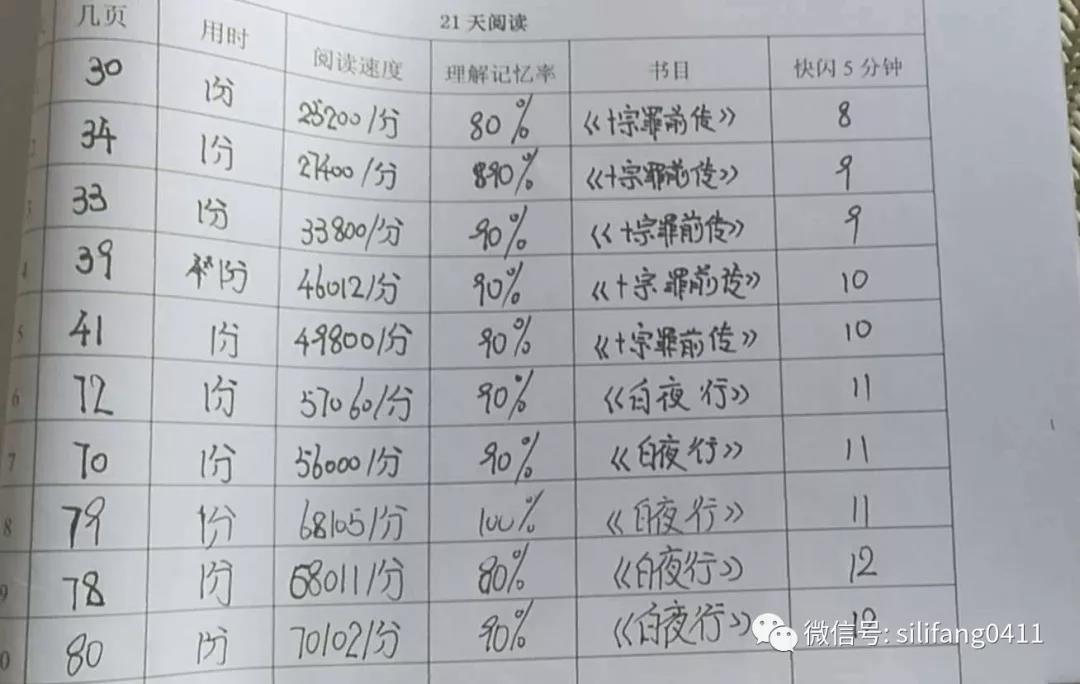 21天阅读
几页 用时 阅读速度 理解记忆率 书目 快闪5分钟
30 1份 25200/分 80% 《十宗罪前传》 8
2 34 1份 27400/分 890% 《十宗罪前传》 9
3 33 1份 33800/分 90% 《十宗罪前传》 9
4 39 1份 46012/分 90% 《十宗罪前传》 10
5 41 1份 49800/分 90% 《十宗罪前传》 10
6 72 1份 57060/分 90% 《白夜行》 11
7 70 1份 56000/分 90% 《白夜行》 11
8 79 1份 68105/分 100% 《白夜行》 11
9 78 1份 68011/分 80% 《白夜行》 12
0 80 1份 70102/分 90% 《白夜行》
微信号: silifang0411